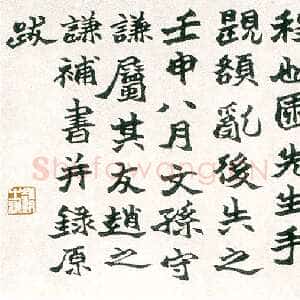 也園先生手
題額亂後失之
壬申八月文孫守
謙屬其友趙之
謙補書并錄原
跋
Shufawang.CN